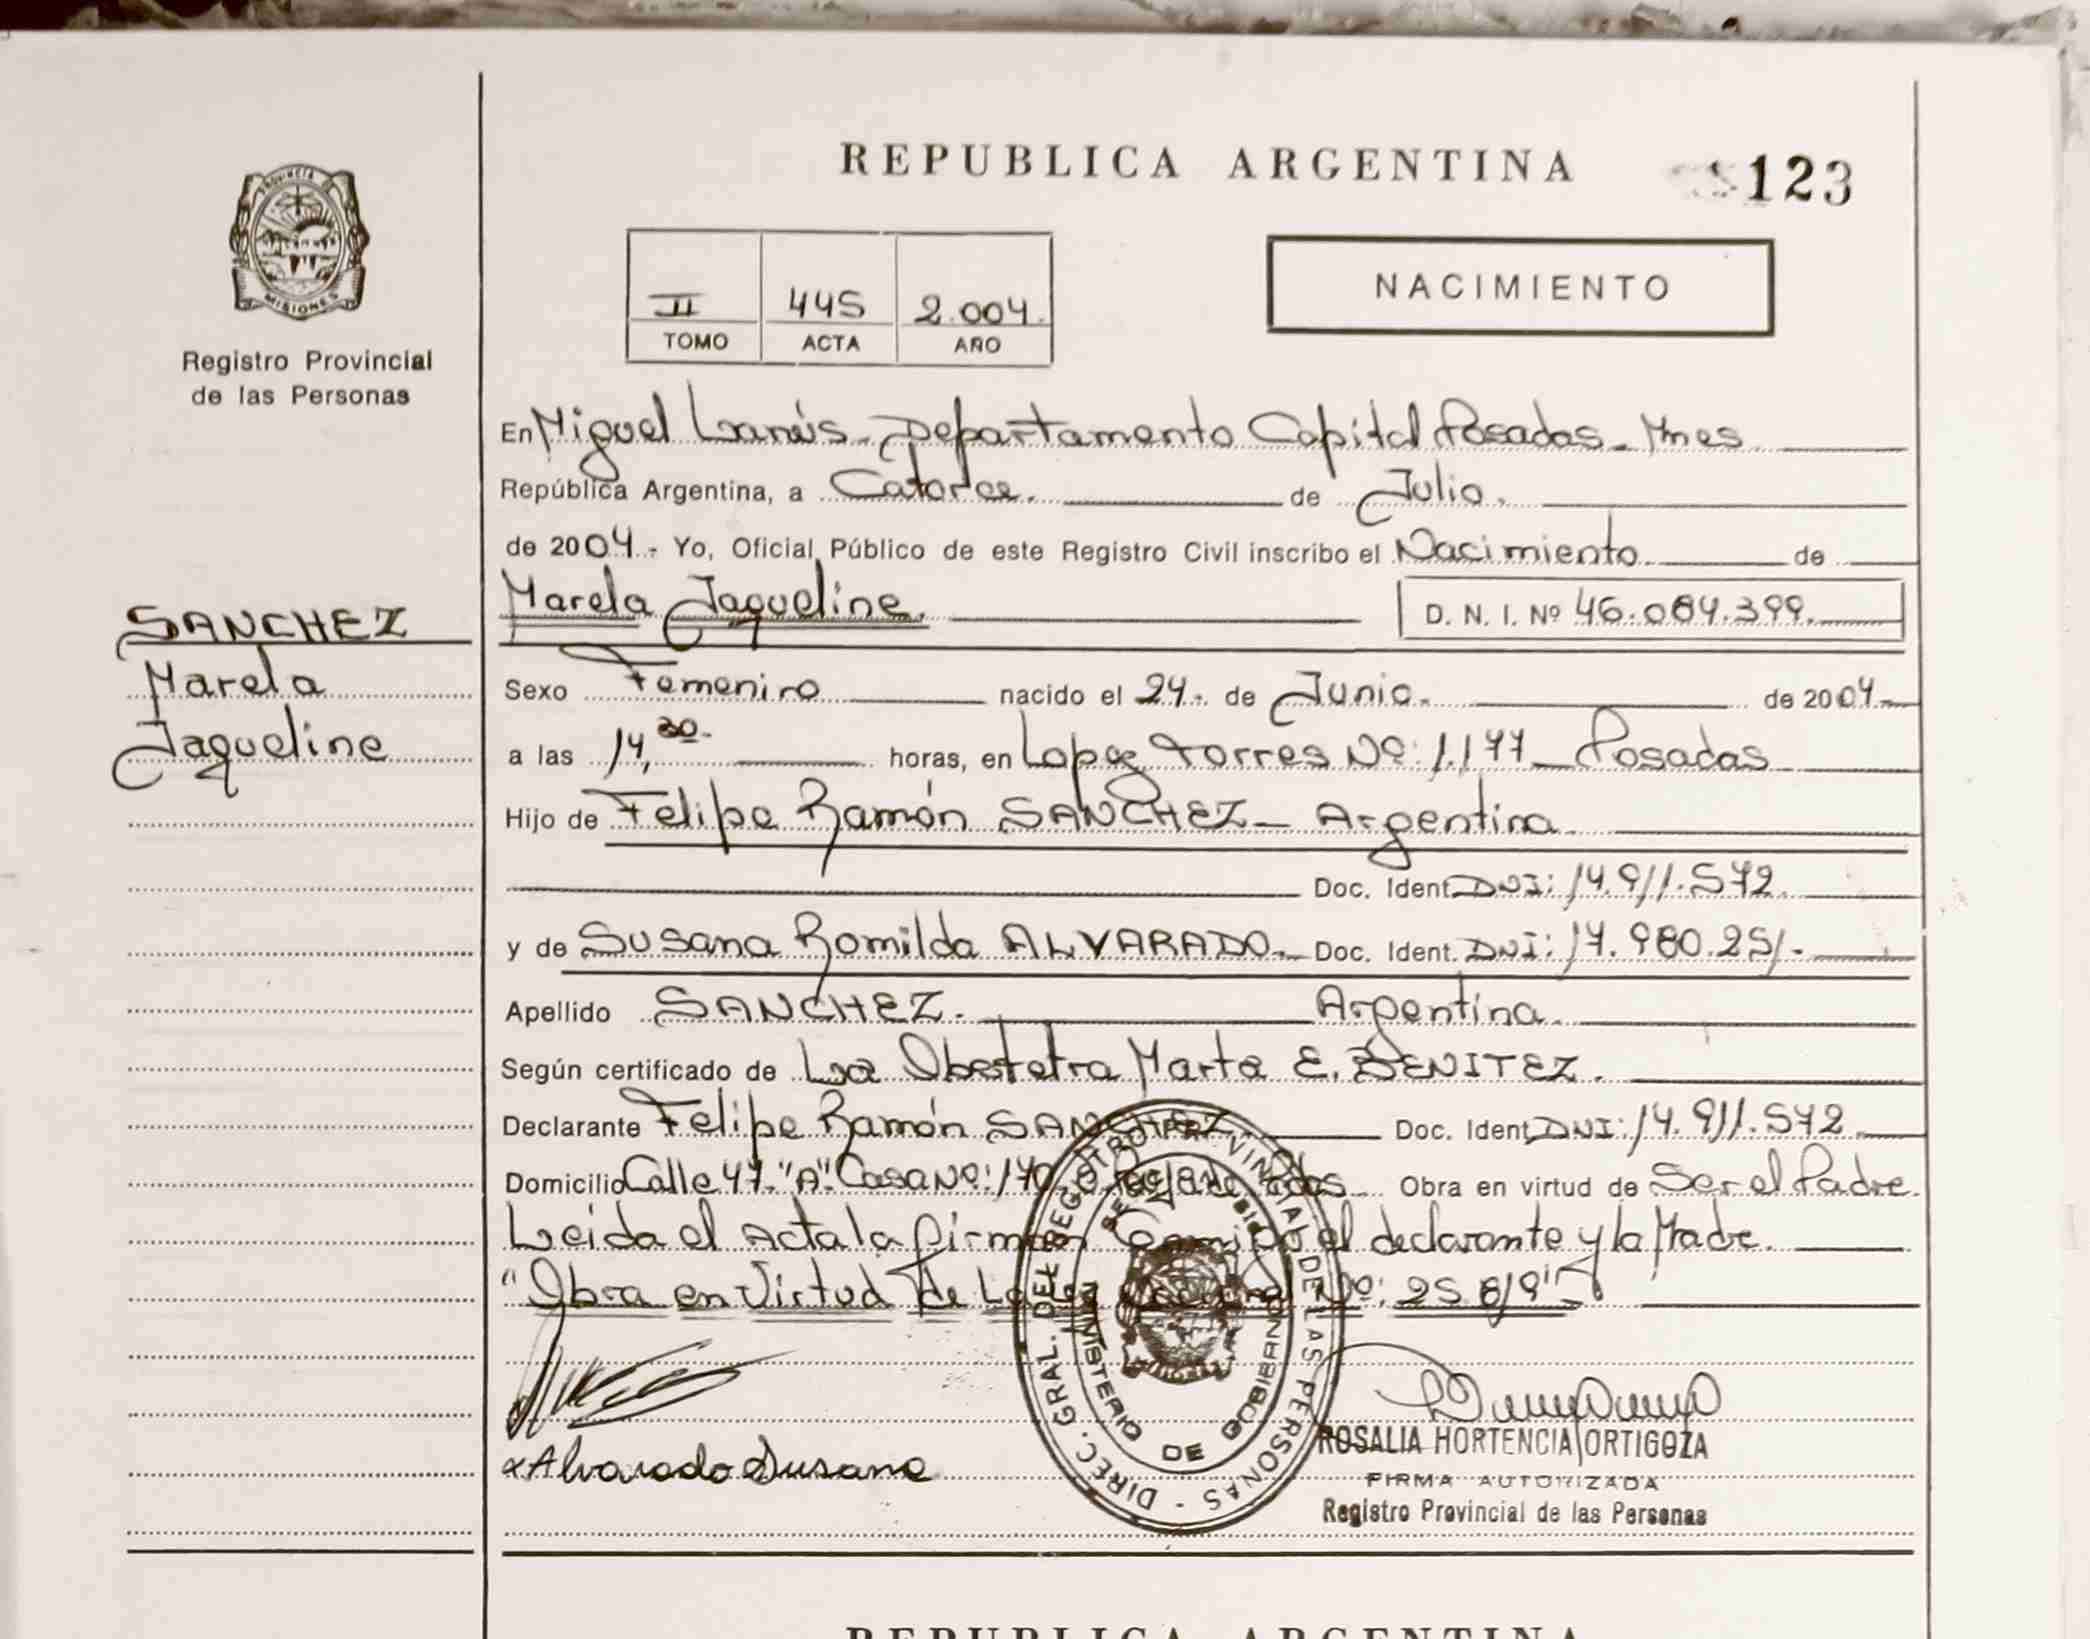 REPUBLICA ARGENTINA
123
PROVINCIA DE MISIONES
Registro Provincial
de las Personas
II 445 2.004.
TOMO ACTA AÑO
NACIMIENTO
En Miguel Lanús. Departamento Capital Posadas - Mnes
República Argentina, a Catorce. de Julio.
de 2004.- Yo, Oficial Público de este Registro Civil inscribo el Nacimiento de
Marela Jaqueline. D. N. I. Nº 46.084.399.
SANCHEZ
Marela
Jaqueline
Sexo Femenino nacido el 24.- de Junio. de 2004.-
a las 14,30.- horas, en Lopez Torres Nº: 1.177 - Posadas
Hijo de Felipe Ramón SANCHEZ - Argentina
Doc. Ident. DNI: 14.911.572.
y de Susana Romilda ALVARADO.- Doc. Ident. DNI: 17.980.251.-
Apellido SANCHEZ. Argentina.
Según certificado de La Obstetra Marta E. BENITEZ.
Declarante Felipe Ramón SANCHEZ. Doc. Ident. DNI: 14.911.572
Domicilio Calle 47."A" Casa Nº: 170 Obra en virtud de Ser el Padre.
Leida el Acta la firman Conmigo el declarante y la Madre.
"Obra en Virtud de Nº:
Alvarado Susana
DIREC. GRAL. DEL REGISTRO PROVINCIAL DE LAS PERSONAS -
MINISTERIO DE GOBIERNO
ROSALIA HORTENCIA ORTIGOZA
FIRMA AUTORIZADA
Registro Provincial de las Personas
REPUBLICA ARGENTINA